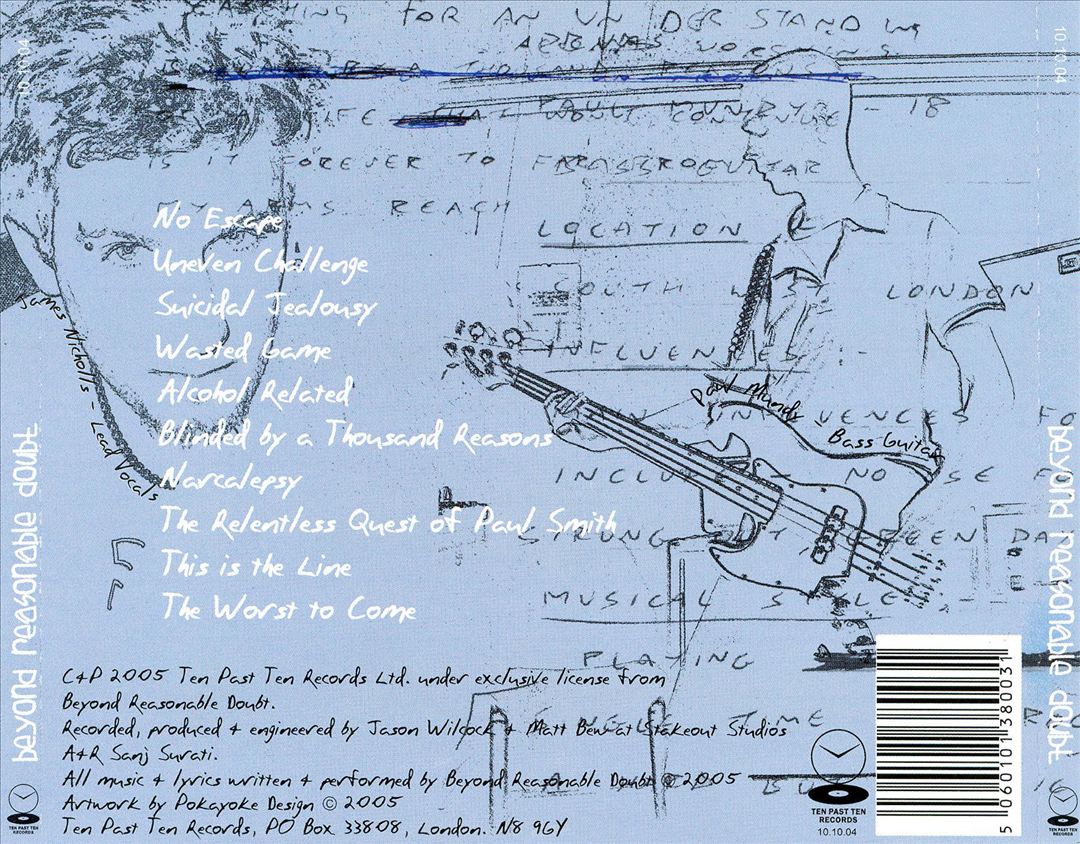 10.10.04
FOR AN UN DER STAND
BY A THOUSAND
LIFE THAT WON'T CONTINUE
PAUL MUNDY - 18
IS IT FOREVER TO
BASS GUITAR
MY ARMS REACH
LOCATION
SOUTH LONDON
INFLUENCES :-
INFLUENCES
INCLUDE - NO USE
STRUNG OUT,
MUSICAL STYLE
PLAYING
TIME
No Escape
Uneven Challenge
Suicidal Jealousy
Wasted Game
Alcohol Related
Blinded by a Thousand Reasons
Narcalepsy
The Relentless Quest of Paul Smith
This is the Line
The Worst to Come
James Nicholls - Lead Vocals
Paul Mundy - Bass Guitar
C&P 2005 Ten Past Ten Records Ltd. under exclusive license from
Beyond Reasonable Doubt.
Recorded, produced & engineered by Jason Wilcock & Matt Bew at Stakeout Studios
A&R Sanj Surati.
All music & lyrics written & performed by Beyond Reasonable Doubt © 2005
Artwork by Pokayoke Design © 2005
Ten Past Ten Records, PO Box 33808, London. N8 9GY
beyond reasonable doubt
TEN PAST TEN
RECORDS
TEN PAST TEN
RECORDS
10.10.04
5 060101 380031
10.10.04
beyond reasonable doubt
TEN PAST TEN
RECORDS